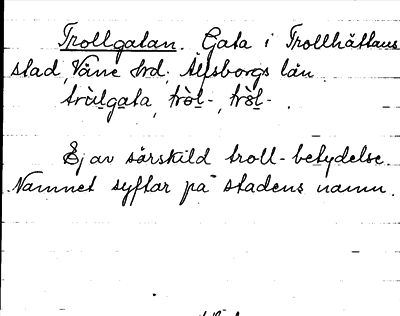 Trollgatan. Gata i Trollhättans
stad, Väne hrd. Älfsborgs län.
trùlgata, tròl-, tròl-.
Ej av särskild troll-betydelse.
Namnet syftar på stadens namn.